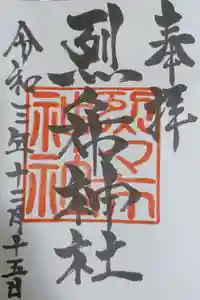 奉拝
烈々布神社
令和三年十二月十五日